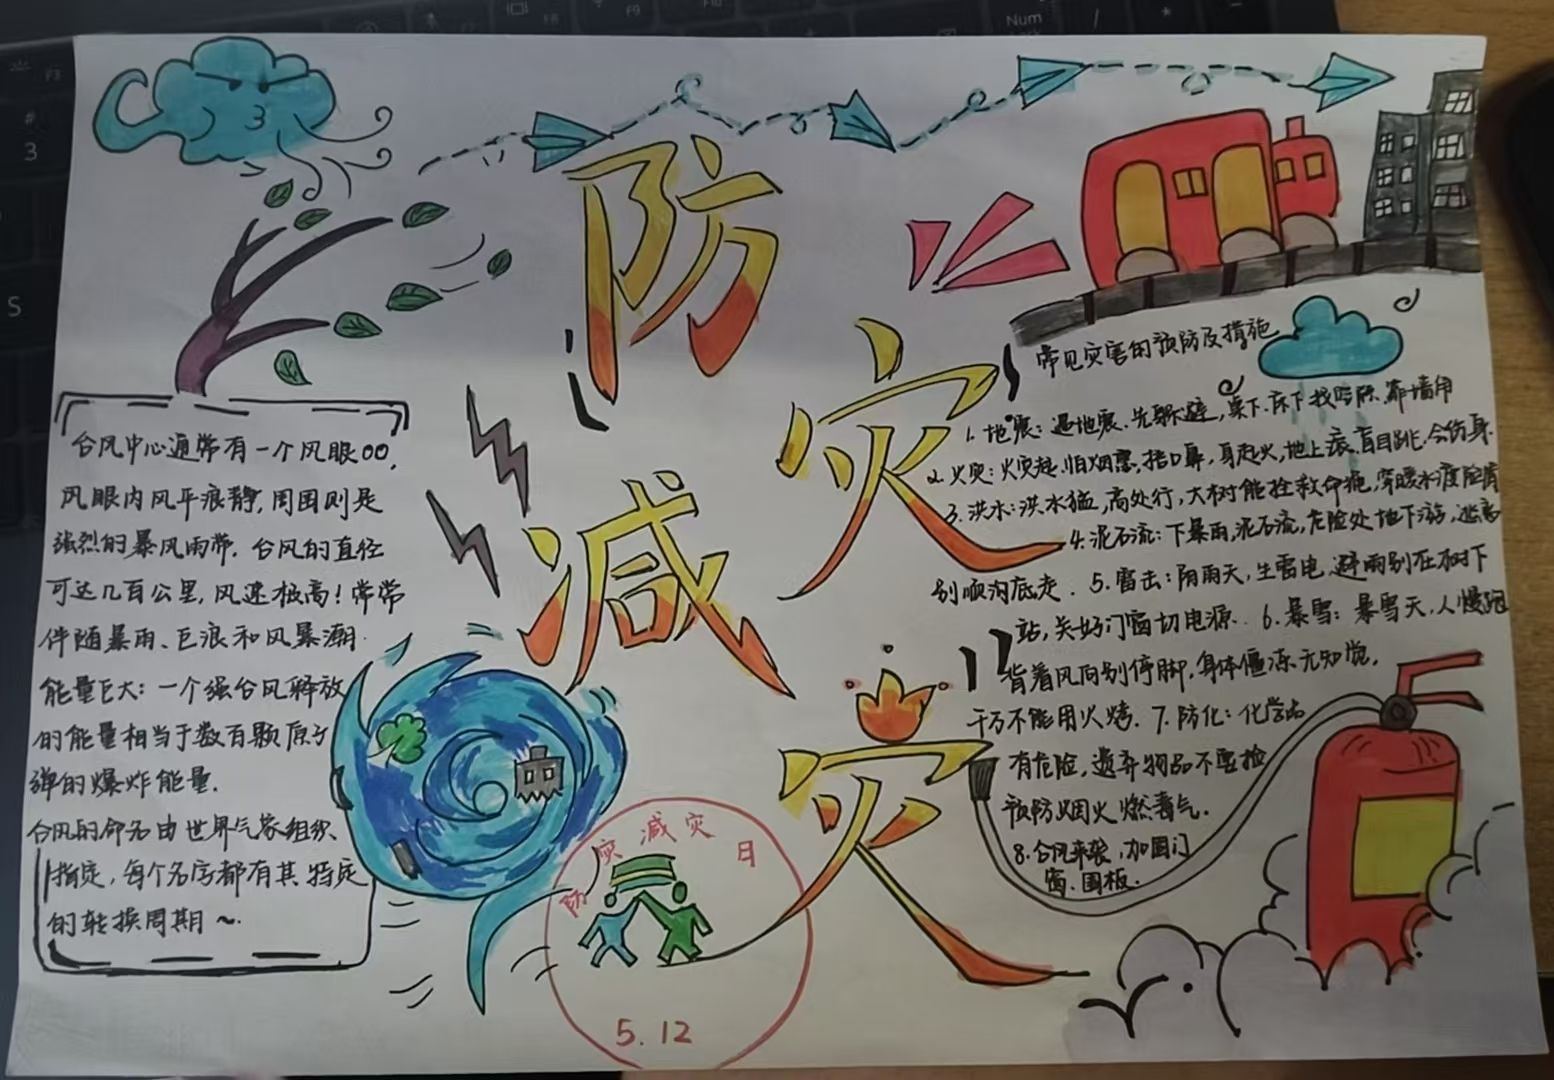 防灾
减灾
台风中心通常有一个风眼OO,
风眼内风平浪静,周围则是
强烈的暴风雨带.台风的直径
可达几百公里,风速极高!常常
伴随暴雨、巨浪和风暴潮.
能量巨大:一个强台风释放
的能量相当于数百颗原子
弹的爆炸能量.
台风的命名由世界气象组织、
指定,每个名字都有其特定
的转换周期~.
常见灾害的预防及措施
1.地震:遇地震.先躲避,桌下.床下找空隙.靠墙角
2.火灾:火灾起.怕烟熏,捂口鼻,身起火,地上滚.盲目跳.会伤身.
3.洪水:洪水猛,高处行,大树能拴救命绳,穿暖水渡险情
4.泥石流:下暴雨,泥石流,危险处地下游,逃离
别顺沟底走.5.雷击:阴雨天,生雷电.避雨别在树下
站,关好门窗切电源.6.暴雪:暴雪天,人慢跑
背着风向别停脚,身体僵冻无知觉,
千万不能用火烤.7.防化:化学品
有危险,遗弃物品不要捡
预防烟火燃毒气.
8.台风来袭,加固门
窗、围板.
防灾减灾日
5.12
F3
#
3
S
F8
F9
Num
/
*
-